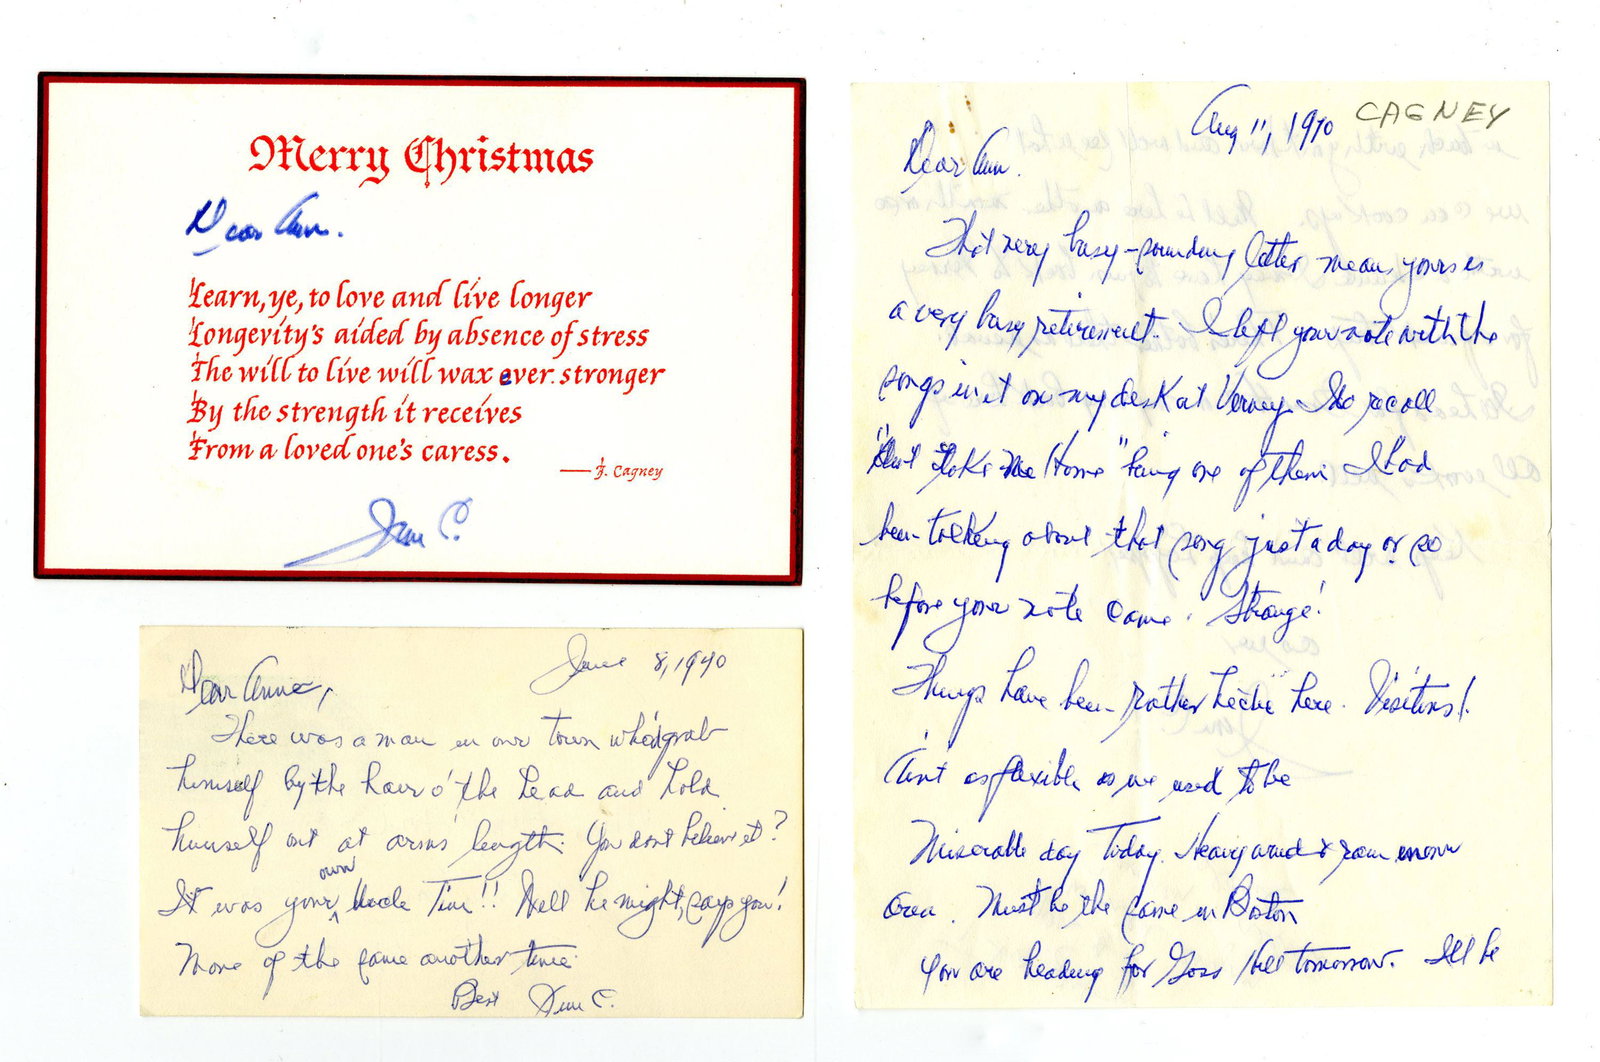 Merry Christmas
Dear Ann.
Learn, ye, to love and live longer
Longevity's aided by absence of stress
The will to live will wax ever stronger
By the strength it receives
From a loved one's caress.
— J. Cagney
Jim C.
June 8, 1970
Dear Anne,
There was a man in our town who'd grab
himself by the hair o' the head and hold
himself out at arms' length. You dont believe it?
It was your own Uncle Tim!! Well he might, says you!
More of the same another time.
Best Jim C.
CAGNEY
Aug 11, 1970
Dear Ann.
That very busy-sounding letter means yours is
a very busy retirement. I left your note with the
songs in it on my desk at Verney. I do recall
Take Me Home" being one of them I had
been talking about that song just a day or so
before your note came. Strange!
Things have been rather hectic here. Visitors!
Aint as flexible as we used to be
Miserable day Today. Heavy wind & rain in our
area. Must be the same in Boston
You are heading for Goss Hill tomorrow. I'll be